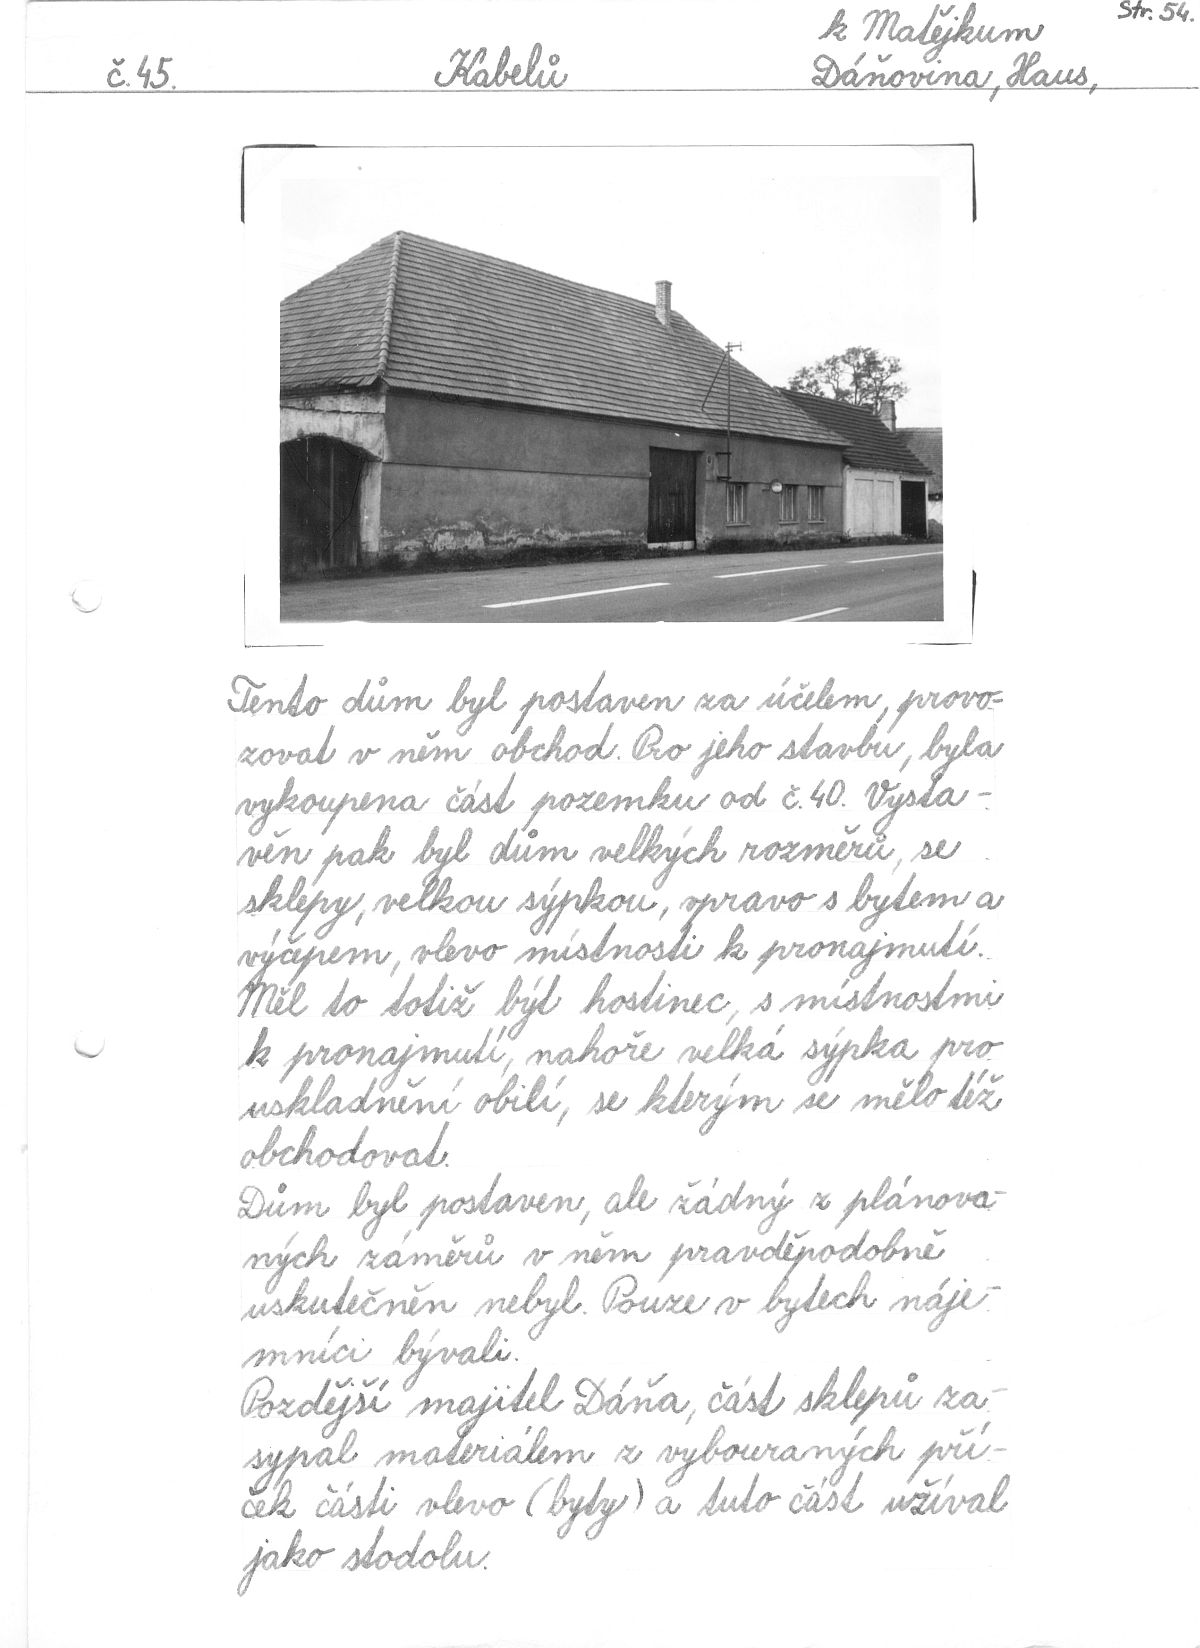 Str. 54.
k Matějkum
č. 45. Kabelů Dáňovina, Haus,
Tento dům byl postaven za účelem, provo-
zovat v něm obchod. Pro jeho stavbu, byla
vykoupena část pozemku od č. 40. Vysta-
věn pak byl dům velkých rozměrů, se
sklepy, velkou sýpkou, vpravo s bytem a
výčepem, vlevo místnosti k pronajmutí.
Měl to totiž být hostinec, s místnostmi
k pronajmutí, nahoře velká sýpka pro
uskladnění obilí, se kterým se mělo též
obchodovat.
Dům byl postaven, ale žádný z plánova-
ných záměrů v něm pravděpodobně
uskutečněn nebyl. Pouze v bytech náje-
mníci bývali.
Pozdější majitel Dáňa, část sklepů za-
sypal materiálem z vybouraných pří-
ček části vlevo (byty) a tuto část užíval
jako stodolu.